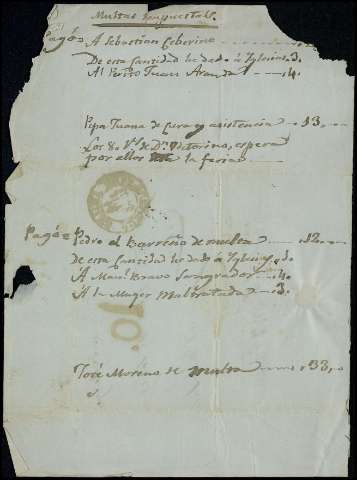 Multas Impuestas.
Pagó = A Sebastian Ceberino
De esta Cantidad he dado á Yglesias 3.
Al Perito Juan Aranda 4.
Pepa Juana de cura y asistencia 13.
Los 80 r.s de D.n Vitorino, espera
por ellos la feria
Pagó = Pedro el Barreño de multa 12.
de esta Cantidad he dado á Yglesias 3.
Á Man.l Bravo Sangrador 4.
Á la Muger Maltratada 3.
José Moreno de multa 33,